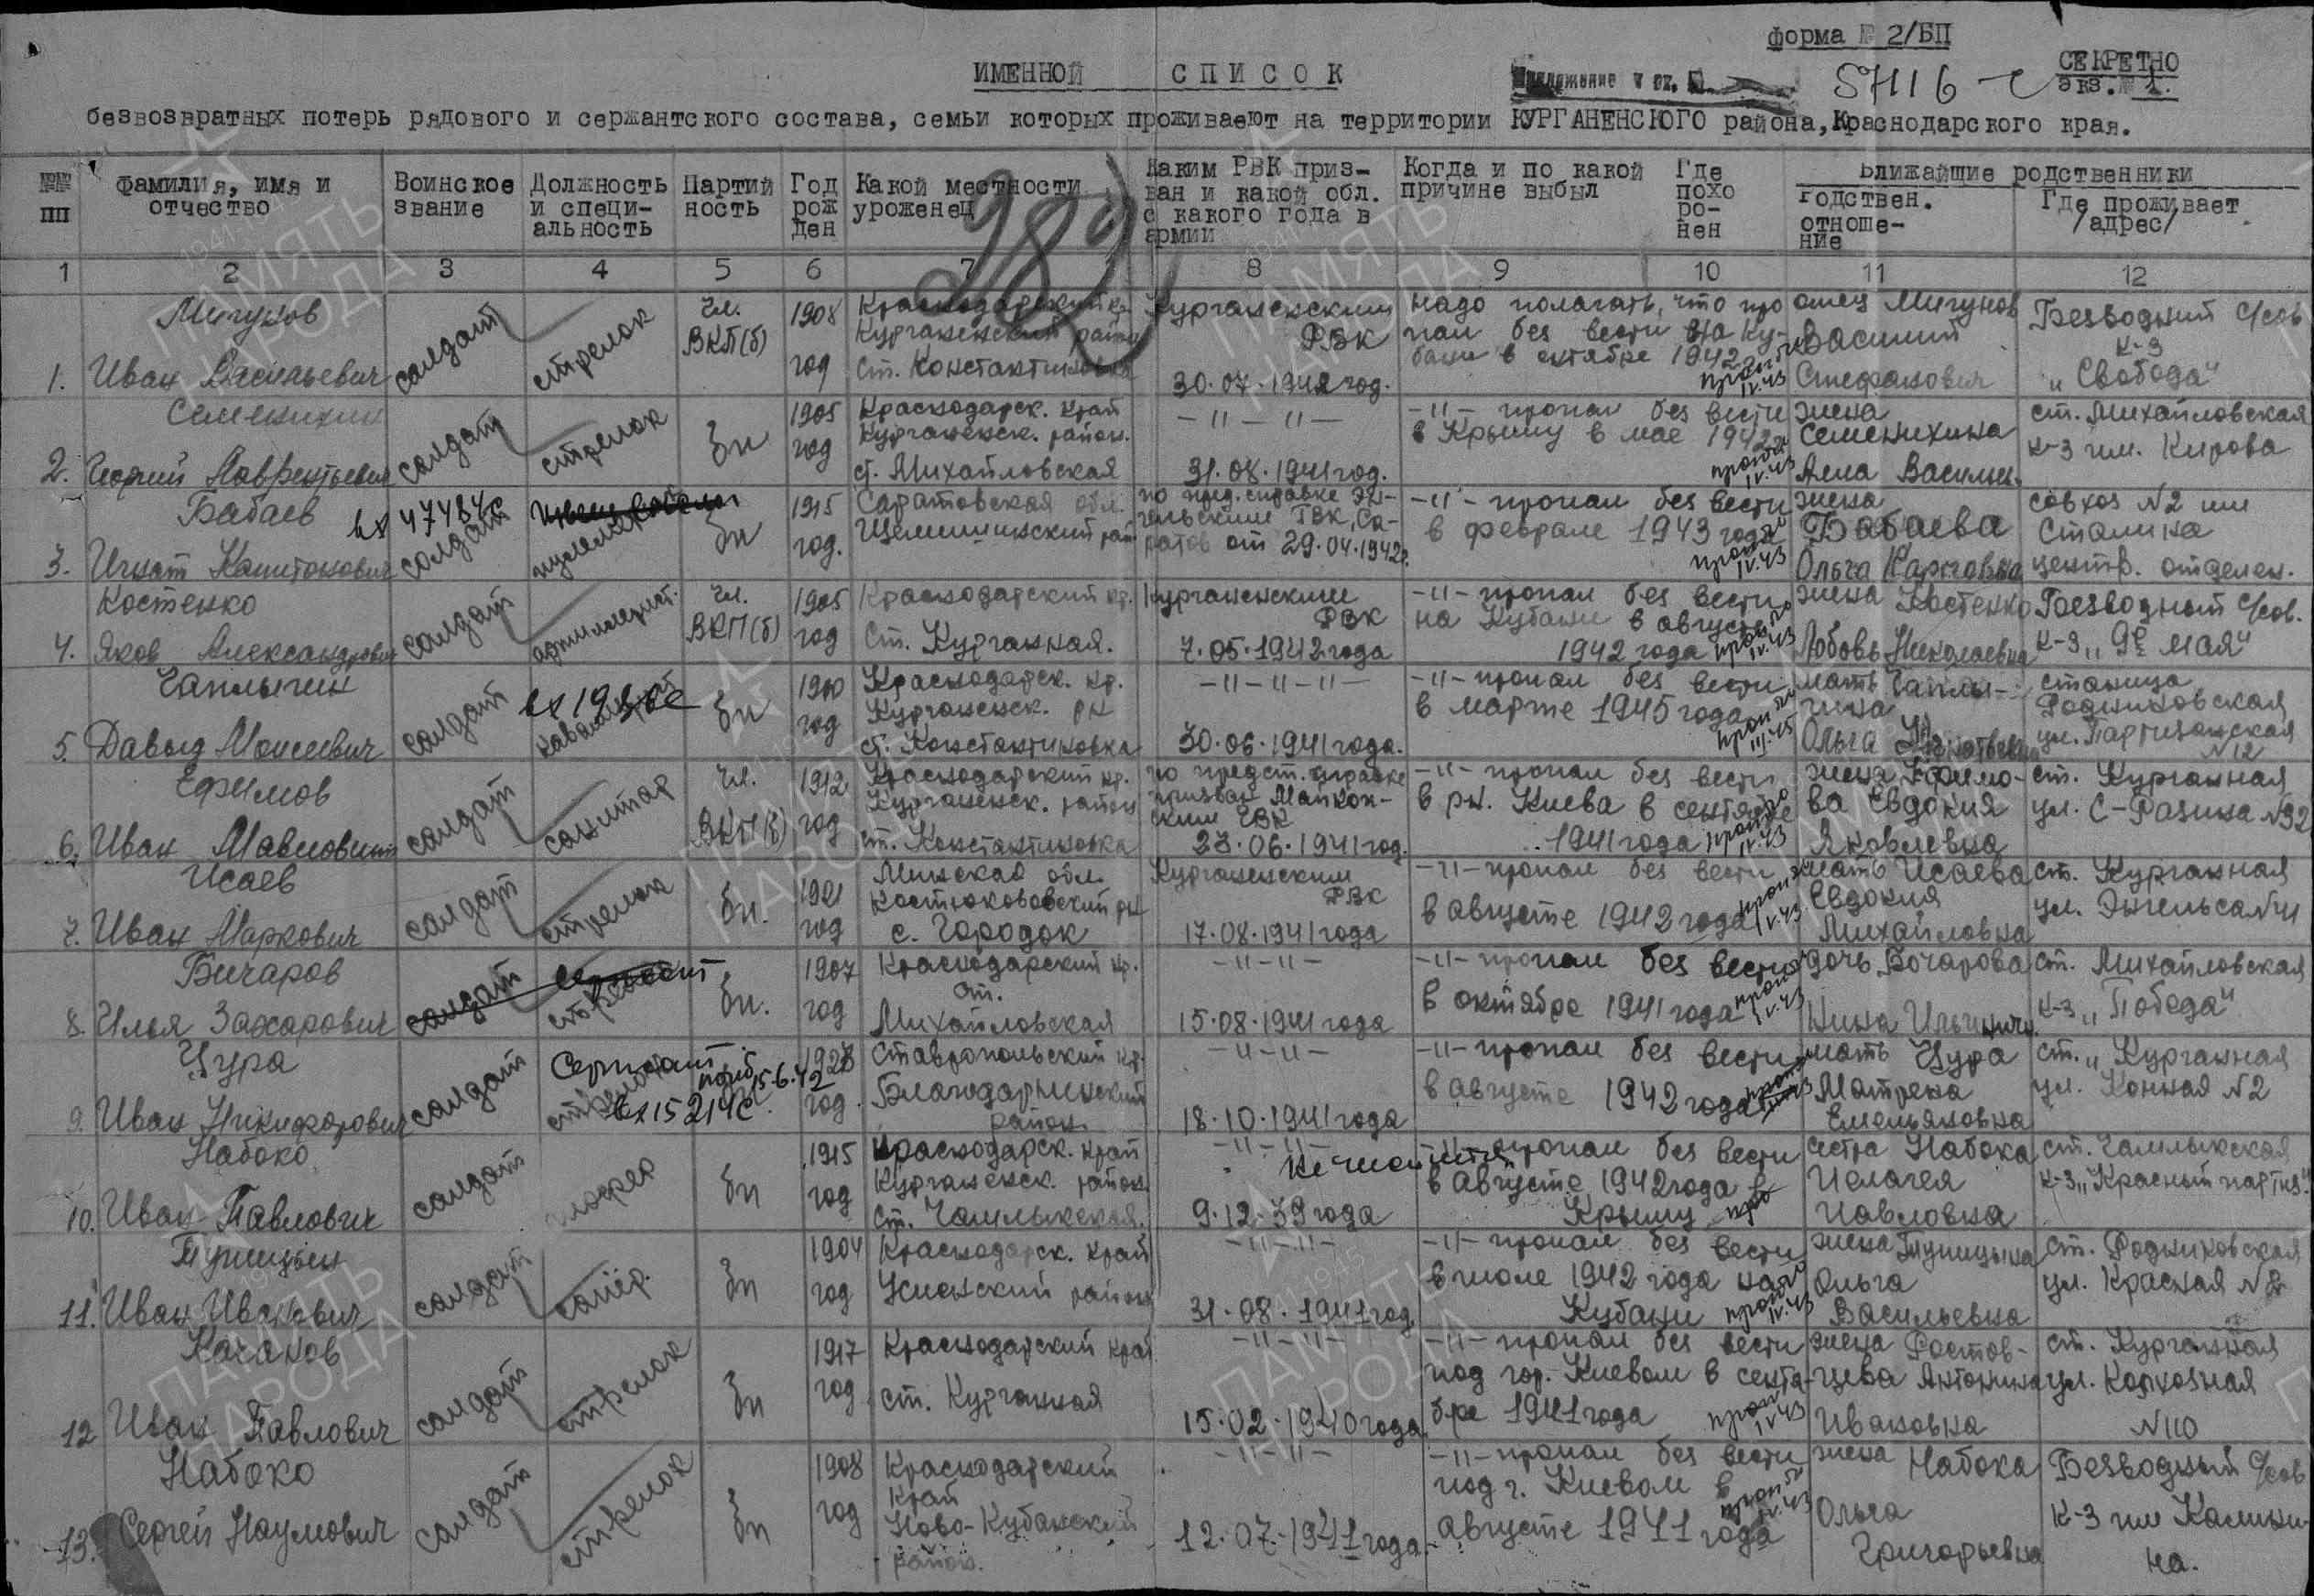 форма № 2/БП
СЕКРЕТНО
экз. № 1.
ИМЕННОЙ СПИСОК
Приложение к вх. №
57116 с
безвозвратных потерь рядового и сержантского состава, семьи которых проживают на территории КУРГАНЕНСКОГО района, Краснодарского края.
№№ пп
Фамилия, имя и отчество
Воинское звание
Должность и специальность
Партийность
Год рожден
Какой местности уроженец
Каким РВК призван и какой обл. с какого года в армии
Когда и по какой причине выбыл
Где похоронен
Ближайшие родственники
Родствен. отношение
Где проживает /адрес/
1 2 3 4 5 6 7 8 9 10 11 12
1. Мигунов Иван Васильевич солдат стрелок Чл. ВКП(б) 1908 год Краснодарский кр. Курганенский район ст. Константиновка Курганенским РВК 30.07.1942 год. Надо полагать, что пропал без вести на Кубани в октябре 1942 отец Мигунов Василий Стефанович Безводный с/сов к-з "Свобода"
2. Семенихин Георгий Лаврентьевич солдат стрелок бп 1905 год Краснодарск. край Курганенск. район. ст. Михайловская -"-"- 31.08.1941 год. -"- пропал без вести в Крыму в мае 1942 жена Семенихина Анна Васильев. ст. Михайловская к-з им. Кирова
3. Бабаев Игнат Капитонович вх 47484с солдат пулеметчик бп 1915 год. Саратовская обл. по пред. справке Энгельским ГВК, Саратов от 29.04.1942г. -"- пропал без вести в феврале 1943 года жена Бабаева Ольга Карповна совхоз №2 им Сталина центр. отделен.
4. Костенко Яков Александрович солдат артиллерист. Чл. ВКП(б) 1905 год Краснодарский кр. ст. Курганная. Курганенским РВК 7.05.1942 года -"- пропал без вести на Кубани в августе 1942 года жена Костенко Любовь Николаевна Безводный с/сов. к-з "9е мая"
5. Чаплыгин Давыд Моисеевич солдат кавалерист бп 1910 год Краснодарск. кр. Курганенск. рн ст. Константиновка -"-"-"- 30.06.1941 года. -"- пропал без вести в марте 1945 года мать Чаплыгина Ольга станица Родниковская ул. Партизанская №12
6. Ефимов Иван солдат санитар Чл. ВКП(б) 1912 год Краснодарский кр. Курганенск. район ст. Константиновка по предст. справке призван Майкопским ГВК 23.06.1941 год. -"- пропал без вести в рн. Киева в сентябре 1941 года жена Ефимова Евдокия Яковлевна ст. Курганная ул. С-Разина №92
7. Исаев Иван Маркович солдат стрелок бп. 1921 год Минская обл. с. Городок Курганенским РВК 17.08.1941 года -"- пропал без вести в августе 1942 года мать Исаева Евдокия Михайловна ст. Курганная ул. Энгельса
8. Бичаров Илья Захарович солдат сержант стрелок бп. 1907 год Краснодарский кр. ст. Михайловская -"-"- 15.08.1941 года -"- пропал без вести в октябре 1941 года дочь Бочарова Нина Ильинич. ст. Михайловская к-з "Победа"
9. Цура Иван Никифорович солдат Сержант стрелок погиб 15.6.42 вх 15214с год. Ставропольский кр. Благодарненский район -"-"- 18.10.1941 года -"- пропал без вести в августе 1942 года мать Цура Матрена Емельяновна ст. Курганная ул. Конная №2
10. Набоко Иван Павлович солдат шофер бп 1915 год Краснодарск. край Курганенск. район. ст. Чамлыкская. -"-"- 9.12.39 года -"- пропал без вести в августе 1942 года в Крыму сестра Набока Пелагея Павловна ст. Чамлыкская к-з "Красный партиз."
11. Тупицын Иван Иванович солдат сапёр. бп 1904 год Краснодарск. край район -"-"- 31.08.1941 год -"- пропал без вести в июле 1942 года на Кубани жена Тупицына Ольга Васильевна ст. Родниковская ул. Красная
12 Качанов Иван Павлович солдат стрелок бп 1917 год Краснодарский край ст. Курганная -"-"- 15.02.1940 года -"- пропал без вести под гор. Киевом в сентябре 1941 года жена Ростовцева Антонина Ивановна ст. Курганная ул. Колхозная №110
13. Набоко Сергей Наумович солдат стрелок бп 1908 год Краснодарский край Ново-Кубанский район. -"-"- 12.07.1941 года. -"- пропал без вести под г. Киевом в августе 1941 года жена Набока Ольга Григорьевна Безводный с/сов к-з им Калинина.
ПАМЯТЬ НАРОДА